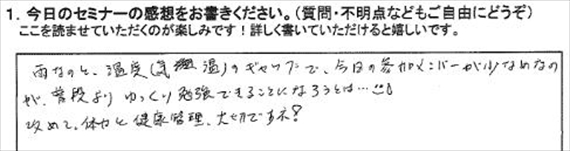 1. 今日のセミナーの感想をお書きください。(質問・不明点などもご自由にどうぞ)
ここを読ませていただくのが楽しみです!詳しく書いていただけると嬉しいです。
雨なのと、温度(気温)のギャップで、今日の参加メンバーが少なめなの
が、普段よりゆっくり勉強できることになろうとは…
改めて、体力と健康管理、大切ですネ!